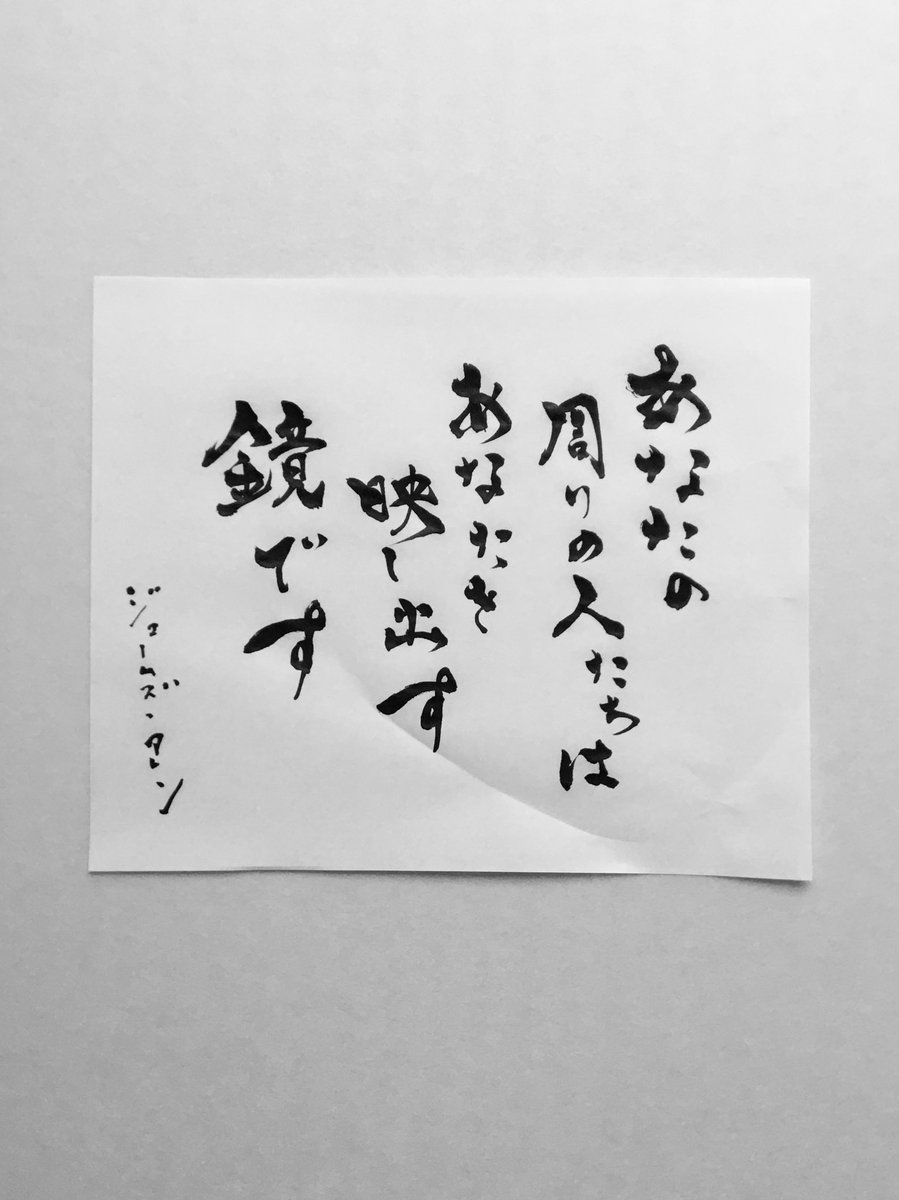 あなたの
周りの人たちは
あなたを
映し出す
鏡です
ジェームズ・アレン